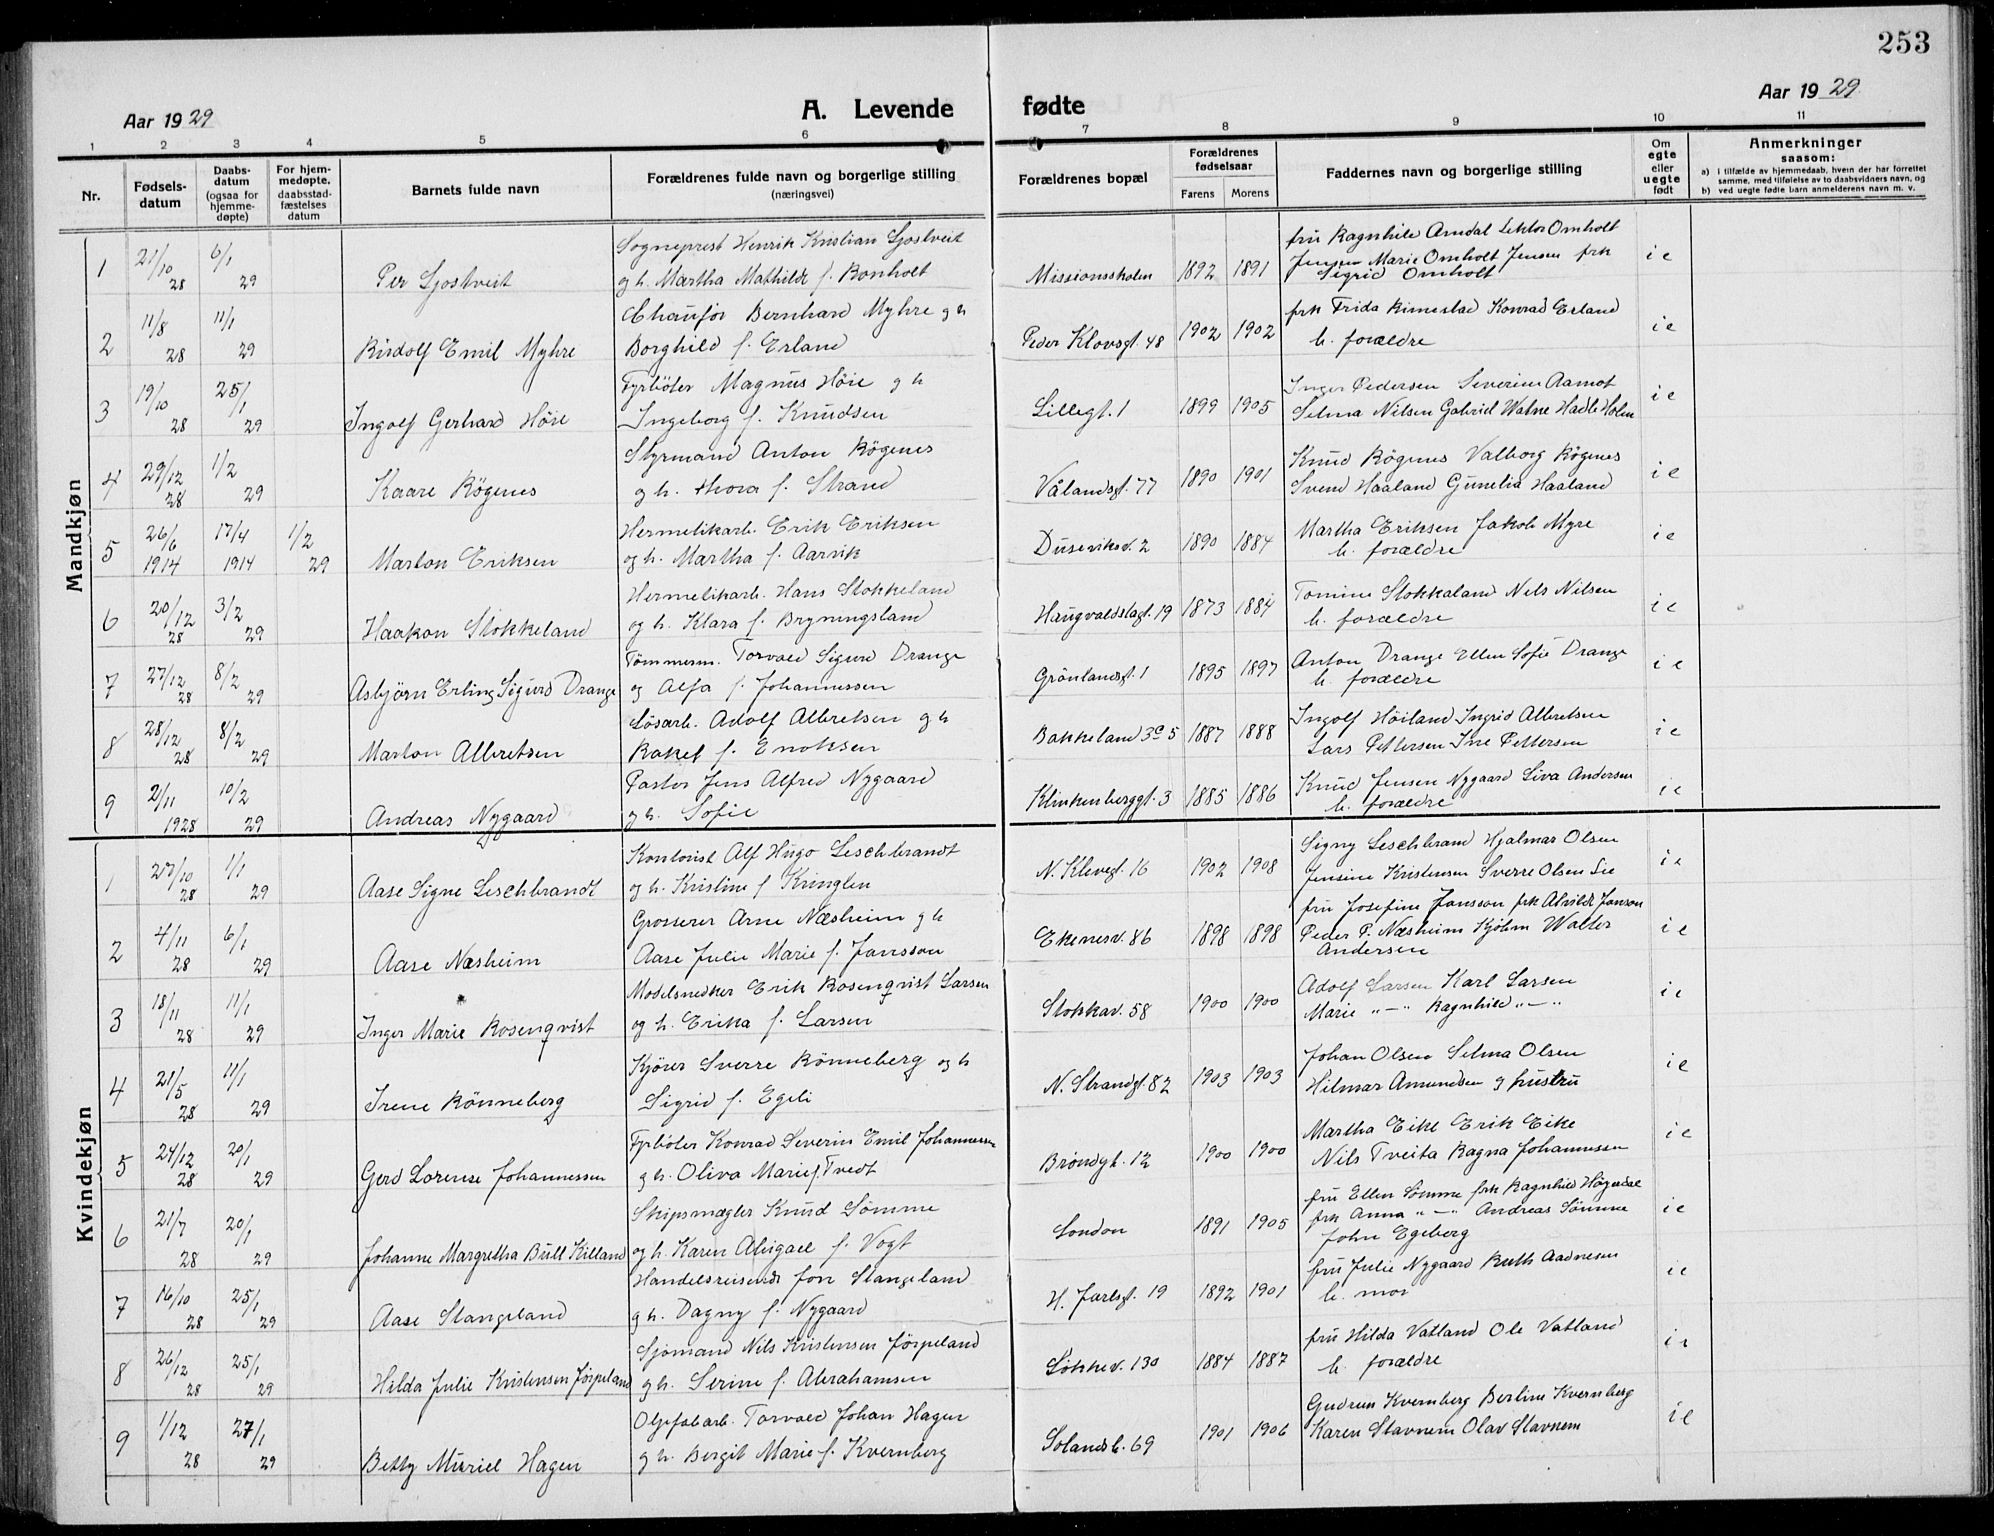 253
Aar 1929
A. Levende fødte
Aar 1929
1 2 3 4 5 6 7 8 9 10 11
Nr.
Fødsels-datum
Daabs-datum (ogsaa for hjemme-døpte)
For hjem-medøpte, daabsstad-fæstelses datum
Barnets fulde navn
Forældrenes fulde navn og borgerlige stilling (næringsvei)
Forældrenes bopæl
Forældrenes fødselsaar
Farens Morens
Faddernes navn og borgerlige stilling
Om egte eller uegte født
Anmerkninger saasom:
a) i tilfælde av hjemmedaab, hvem der har forrettet samme, med tilføielse av to daabsvidners navn, og
b) ved uegte fødte barn anmelderens navn m. v.
Mandkjøn
1 21/10 28 6/1 29 Per Ljostveit
Sogneprest Henrik Kristian Ljostveit
og h. Martha Mathilde f. Bonholt
Missionsskolen 1892 1891
fru Ragnhild Arndal Lektor Omholt
Jensen Marie Omholt Jensen frk
Sigrid Omholt
i e
2 11/8 28 11/1 29 Rudolf Emil Myhre
Chaufør Bernhard Myhre og h
Borghild f. Erland
Peder Klowsgt. 48 1902 1902
frk Frida Rimestad Konrad Erland
b. forældre
i e
3 19/10 28 25/1 29 Ingolf Gerhard Høie
Fyrbøter Magnus Høie g h
Ingeborg f. Knudsen
Lillegt. 1 1899 1905
Inger Pedersen Severine Aamot
Selma Nilsen Gabriel Watne Hadle Holen
i e
4 29/12 28 1/2 29 Kaare Røgenes
Styrmand Anton Røgenes
og h. Thora f. Strand
Vålandsgt. 77 1890 1901
Knud Røgenes Valborg Røgenes
Svend Haaland Gunelia Haaland
i e
5 26/6 1914 17/4 1914 1/2 29 Marton Eriksen
Hermetikarb. Erik Eriksen
og h. Martha f. Aarvik
Duseviksv. 2 1890 1884
Martha Eriksen Jakob Myre
b. forældre
i e
6 20/12 28 3/2 29 Haakon Stokkeland
Hermetikarb. Hans Stokkeland
og h. Klara f. Bryningsland
Haugvaldstagt. 19 1873 1884
Tomine Stokkaland Nels Nilsen
b. forældre
i e
7 27/12 28 8/2 29 Asbjørn Erling Sigurd Drange
Tømmerm. Torvald Sigurd Drange
og Alfa f. Johannessen
Grønlandsgt. 1 1895 1897
Anton Drange Ellen Sofie Drange
b. forældre
i e
8 28/12 28 8/2 29 Marton Albretsen
Løsarb. Adolf Albretsen g h
Rakel f. Enoksen
Bakkeland 3c 5 1887 1888
Ingolf Høiland Ingrid Albretsen
Lars Pettersen Ine Pettersen
i e
9 2/11 1928 10/2 29 Andreas Nygaard
Pastor Jens Alfred Nygaard
g h. Sofie
Klinkenberggt. 3 1885 1886
Knud Jensen Nygaard Liva Andersen
b. forældre
i e
Kvindekjøn
1 27/10 28 1/1 29 Aase Signe Leschbrandt
Kontorist Alf Hugo Leschbrandt
og h. Kristine f Kringlen
N. Klevegt. 16 1902 1908
Signy Leschbrand Hjalmar Olsen
Jensine Kristensen Sverre Olsen Lie
i e
2 4/11 28 6/1 29 Aase Næsheim
Grosserer Arne Næsheim g h
Aase Julie Marie f. Jansson
Ekenesv. 86 1898 1898
fru Josefine Jansson frk Alvilde Janson
Peder P. Næsheim Kjølm Walter
Andersen
i e
3 18/11 28 11/1 29 Inger Marie Rosenqvist
Modelsnedker Erik Rosenqvist Larsen
og h. Erika f. Larsen
Stokkav. 58 1900 1900
Adolf Larsen Karl Larsen
Marie "–" Ragnhild "–"
i e
4 21/5 28 11/1 29 Irene Rønneberg
Kjører Sverre Rønneberg og h
Sigrid f. Egeli
N. Strandgt. 82 1903 1903
Johan Olsen Selma Olsen
Hilmar Amundsen g hustru
i e
5 24/12 28 20/1 29 Gerd Lorense Johannessen
Fyrbøter Konrad Severin Emil Johannessen
g h. Oliva Marie f. Tvedt
Brøndgt. 12 1900 1900
Martha Eike Erik Eike
Nils Tveita Ragna Johannessen
i e
6 21/7 28 20/1 29 Johanne Margretha Bull Killand
Skipsmægler Knud Sømme
og h. Karen Abigael f. Vogt
London 1891 1905
fru Ellen Sømme frk Ragnhild Høgedal
frk Anna "–" Andreas Sømme
John Egeberg
i e
7 16/10 28 25/1 29 Aase Stangeland
Handelsreisende Jon Stangeland
g h. Dagny f. Nygaard
H. Jarlsgt. 19 1892 1901
fru Julie Nygaard Ruth Aadnesen
b. mor
i e
8 26/12 28 25/1 29 Hilda Julie Kristensen Jørpeland
Sjømand Nils Kristensen Jørpeland
g h. Serine f. Abrahamsen
Løkkev. 130 1884 1887
fru Hilda Vatland Ole Vatland
b. forældre
i e
9 1/12 28 27/1 29 Betty Muriel Hagen
Oljefabarb. Torvald Johan Hagen
g h. Bergit Marie f. Kvernberg
Solandsb. 69 1901 1906
Gudrun Kvernberg Berline Kvernberg
Karen Stavnem Olav Stavnem
i e